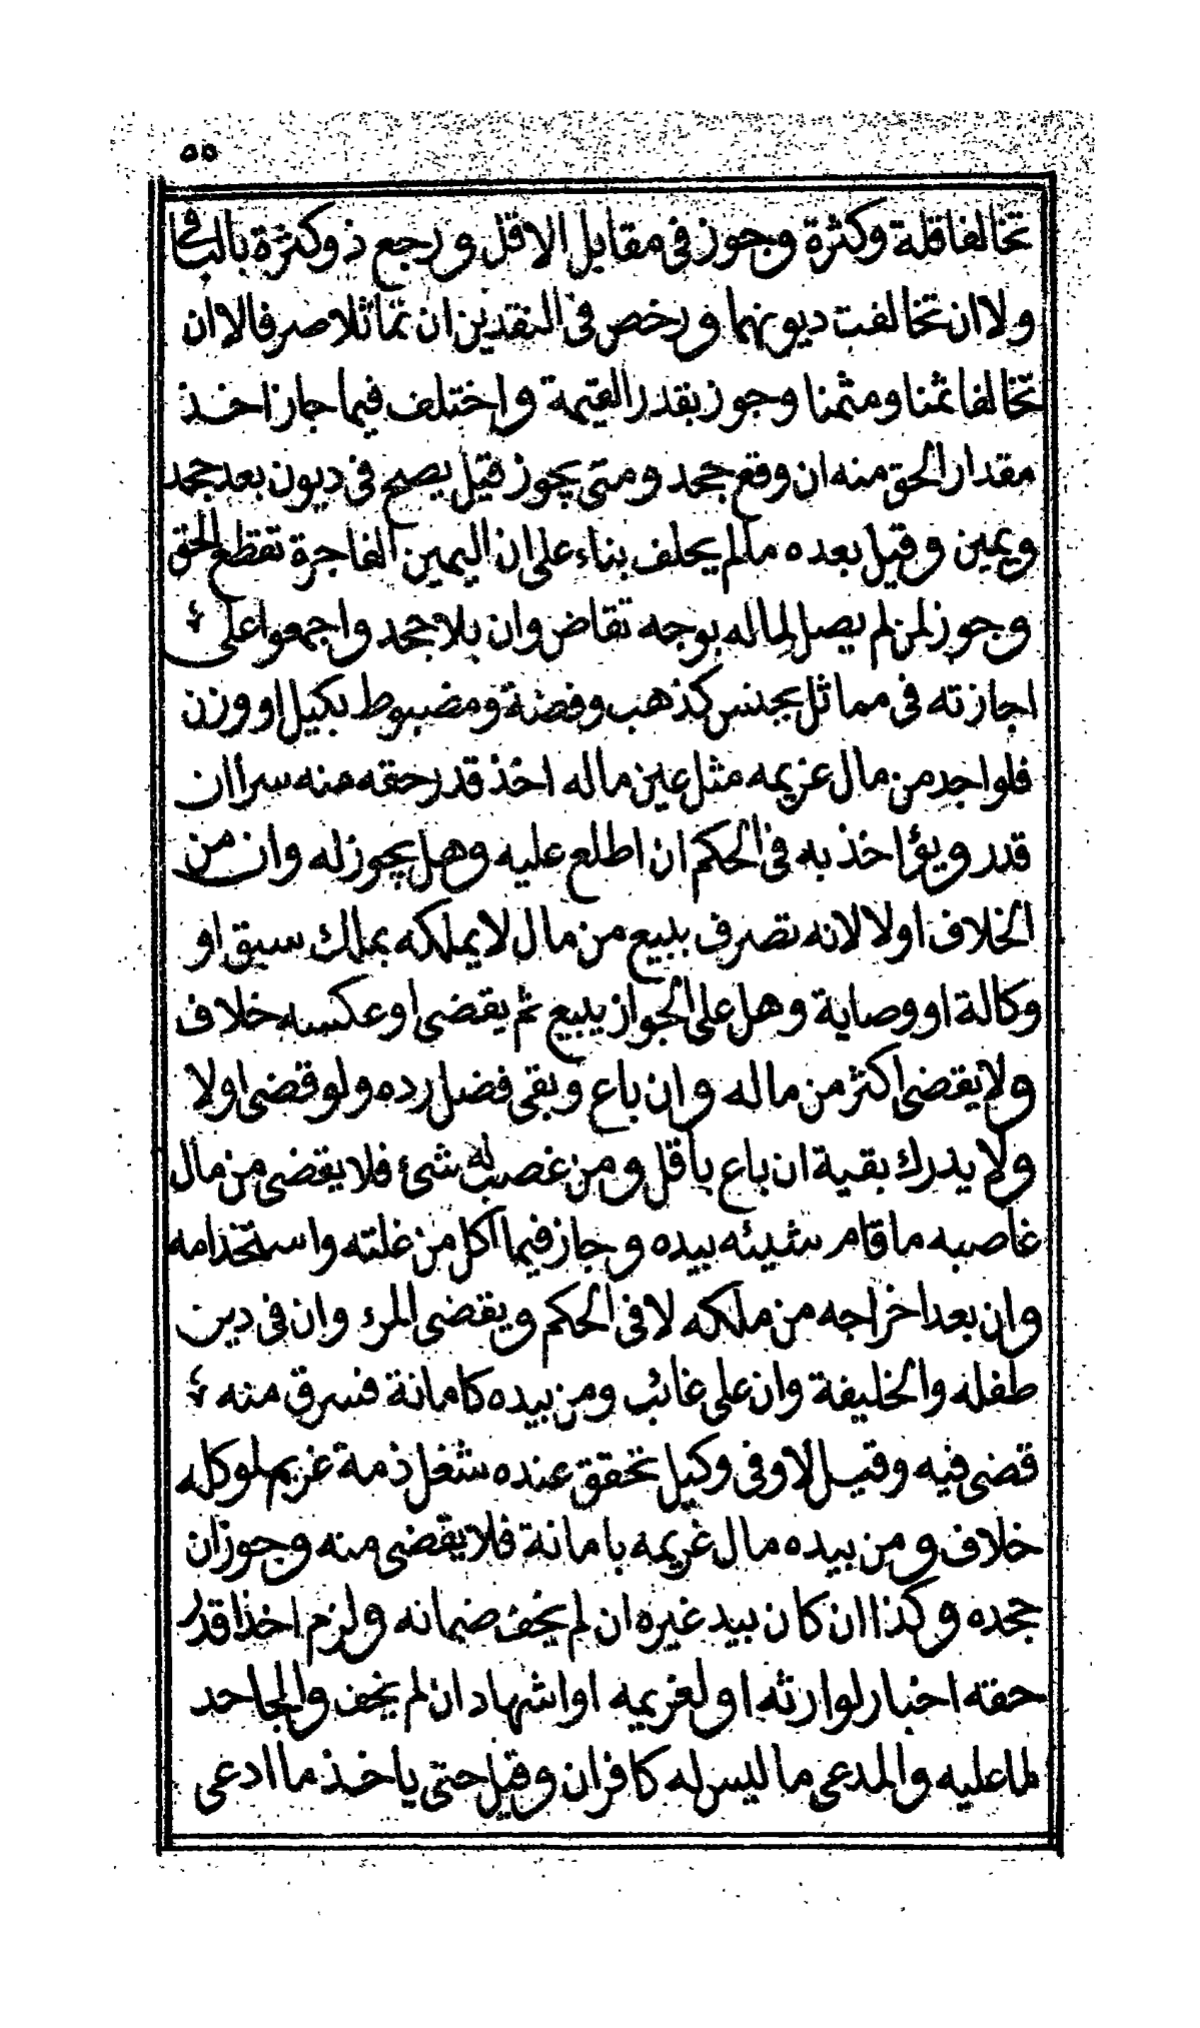 ٥٥
تخالفا قلة وكثرة وجوز في مقابل الاقل ورجع ذو كثرة بالباقي
ولا ان تخالفت ديونهما ورخص في النقدين ان تماثلا صرفا لا ان
تخالفا ثمنا ومثمنا وجوز بقدر القيمة واختلف فيما جاز اخذ
مقدار الحق منه ان وقع جحد ومتى يجوز قيل يصح في ديون بعد جحد
ويمين وقيل بعده ما لم يحلف بناء على ان اليمين الفاجرة تقطع الحق
وجوز لمن لم يصل لماله بوجه تقاض وان بلا جحد واجمعوا على
اجازته في مماثل بجنس كذهب وفضة ومضبوط بكيل او وزن
فلواجد من مال غريمه مثل عين ماله اخذ قدر حقه منه سرا ان
قدر ويؤاخذ به في الحكم ان اطلع عليه وهل يجوز له وان من
الخلاف او لا لانه تصرف ببيع من مال لا يملكه بملك سبق او
وكالة او وصاية وهل على الجواز يبيع ثم يقضي او عكسه خلاف
ولا يقضي اكثر من ماله وان باع وبقي فضل رده ولو قضى اولا
ولا يدرك بقية ان باع باقل ومن غصب له شئ فلا يقضي من مال
غاصبه ما قام شيئه بيده وجاز فيما اكل من غلته واستخدامه
وان بعد اخراجه من ملكه لا في الحكم ويقضي المرء وان في دين
طفله والخليفة وان على غائب ومن بيده كامانة فسرق منه
قضى فيه وقيل لا وفي وكيل تحقق عنده شغل ذمة غريم لوكله
خلاف ومن بيده مال غريمه بامانة فلا يقضي منه وجوز ان
جحده وكذا ان كان بيد غيره ان لم يخف ضمانه ولزم اخذا قدر
حقه اخبار لوارثه او لغريمه او اشهاد ان لم يخف والجاحد
لما عليه والمدعي ما ليس له كافران وقيل حتى ياخذ ما ادعى